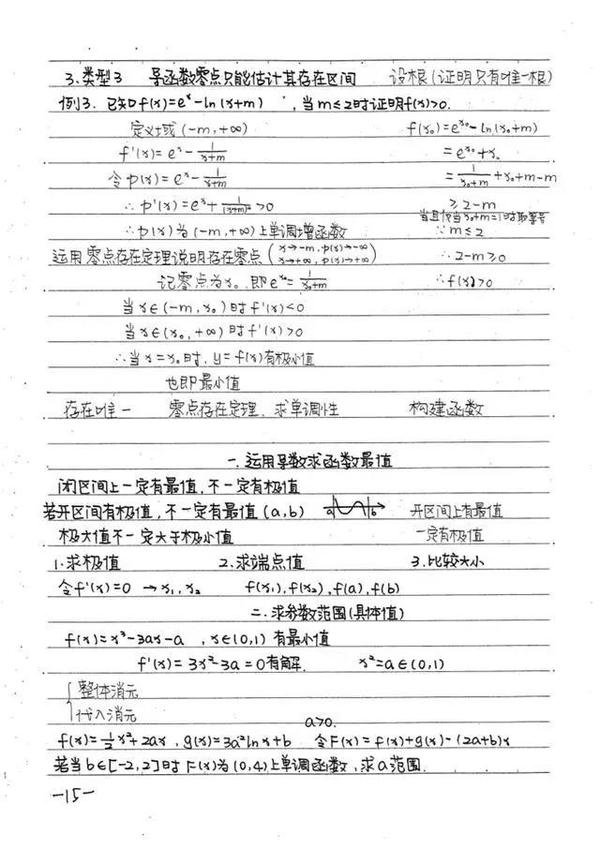 3.类型3 导函数零点只能估计其存在区间 设根(证明只有唯一根)
例3. 已知f(x)=e^x-ln(x+m) ,当m≤2时证明f(x)>0.
定义域(-m,+∞) f(x₀)=e^x₀-ln(x₀+m)
f'(x)=e^x-1/(x+m) =e^x₀+x₀
令p(x)=e^x-1/(x+m) =1/(x₀+m)+x₀+m-m
∴p'(x)=e^x+1/(x+m)²>0 ≥2-m
当且仅当x₀+m=1时取等号
∴p(x)为(-m,+∞)上单调增函数 ∵m≤2
运用零点存在定理说明存在零点(x→-m,p(x)→-∞ x→+∞,p(x)→+∞) ∴2-m≥0
记零点为x₀.即e^x₀=1/(x₀+m) ∴f(x)>0
当x∈(-m,x₀)时f'(x)<0
当x∈(x₀,+∞)时f'(x)>0
∴当x=x₀时,y=f(x)有极小值
也即最小值
存在唯一 零点存在定理、求单调性 构建函数
一.运用导数求函数最值
闭区间上一定有最值,不一定有极值
若开区间有极值,不一定有最值(a,b) a b 开区间上有最值
极大值不一定大于极小值 一定有极值
1.求极值 2.求端点值 3.比较大小
令f'(x)=0 →x₁,x₂ f(x₁),f(x₂),f(a),f(b)
二.求参数范围(具体值)
f(x)=x³-3ax-a ,x∈(0,1)有最小值
f'(x)=3x²-3a=0有解. x²=a∈(0,1)
{整体消元
代入消元
a>0.
f(x)=½x²+2ax,g(x)=3a²lnx+b 令F(x)=f(x)+g(x)-(2a+b)x
若当b∈[-2,2]时F(x)为(0,4)上单调函数,求a范围.
-15-